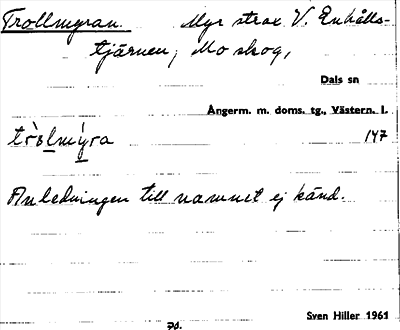 Trollmyran. Myr strax V. Enhålls-
tjärnen, Mo skog,
Dals sn
Ångerm. m. doms. tg., Västern. l.
tròlmýra 147
Anledningen till namnet ej känd.
Sven Hiller 1961